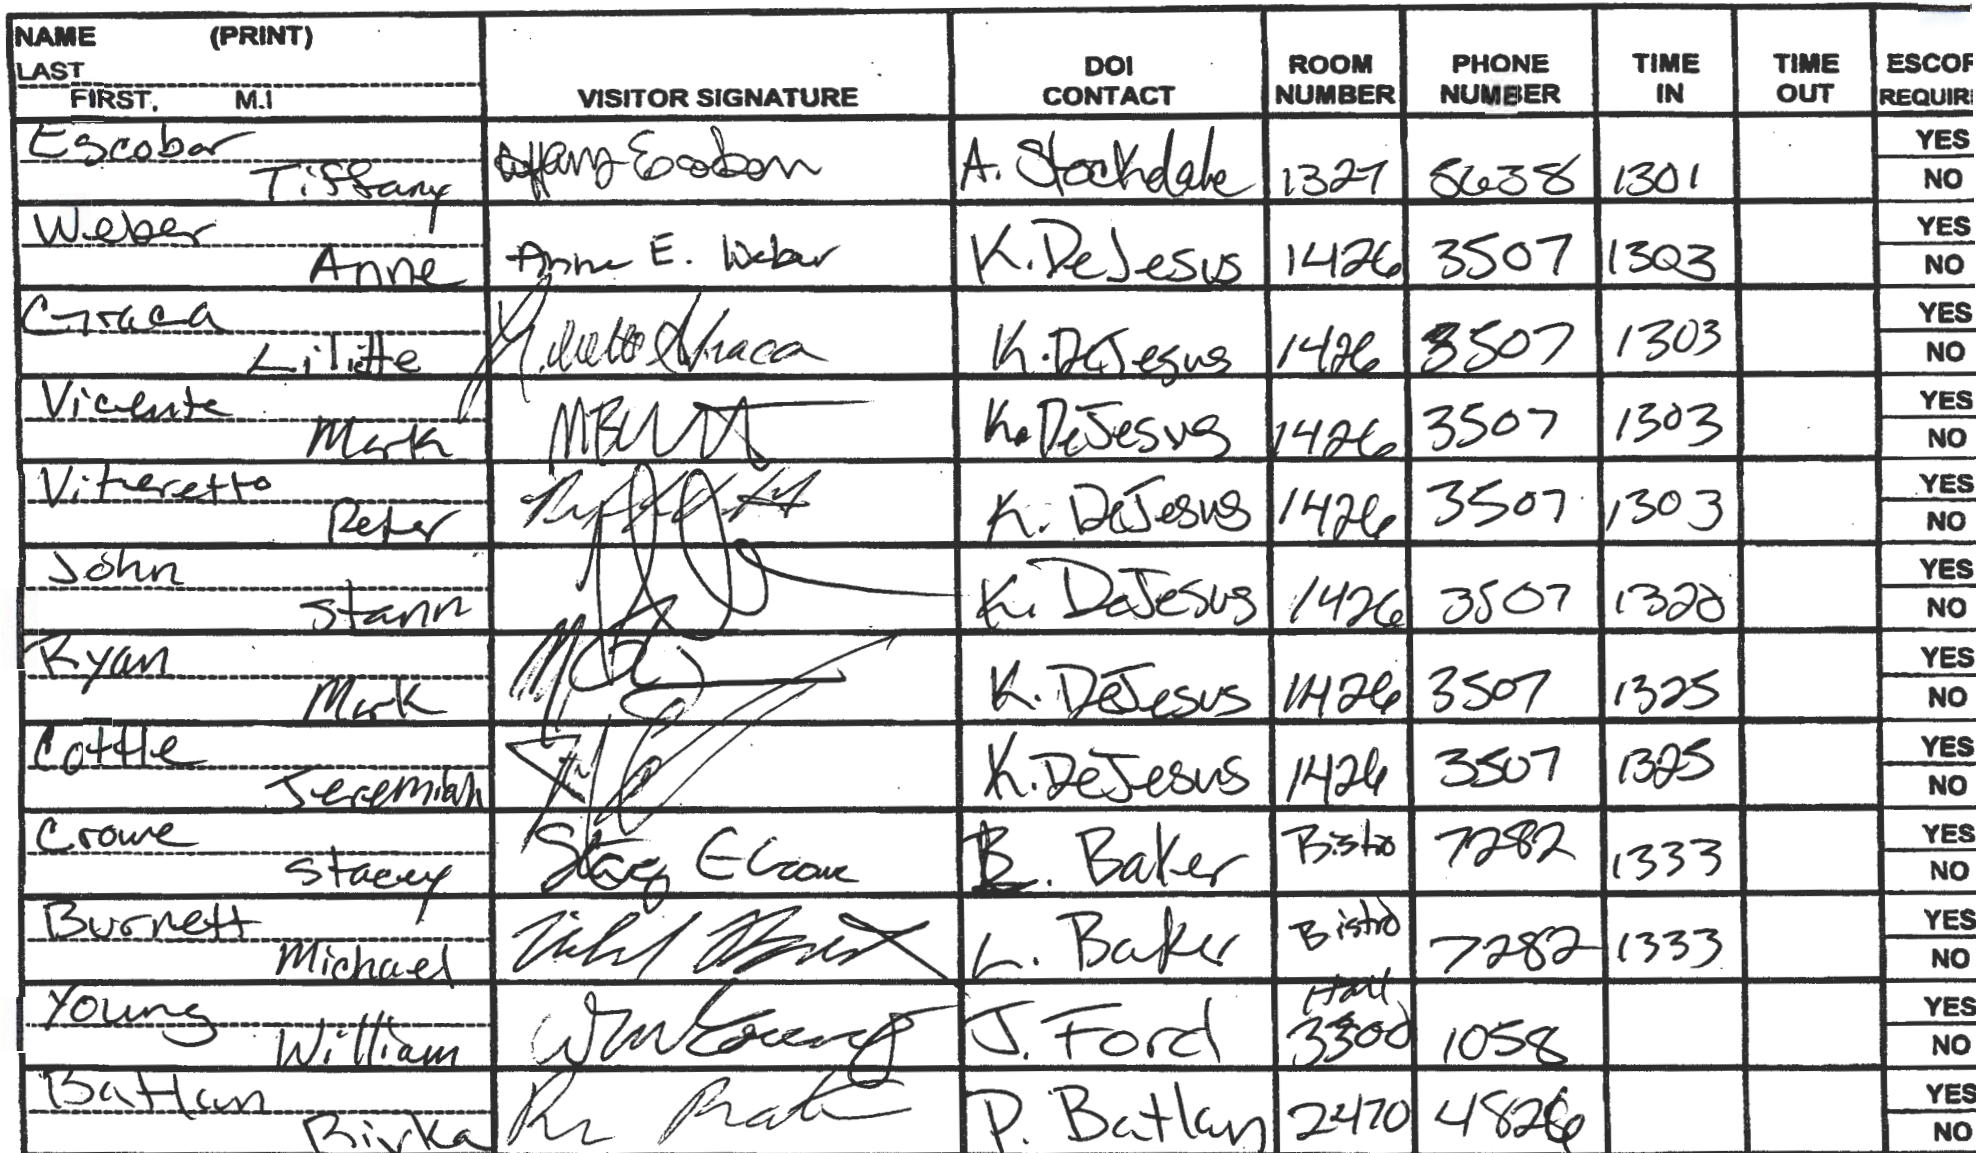 NAME (PRINT)
LAST
FIRST, M.I
VISITOR SIGNATURE
DOI CONTACT
ROOM NUMBER
PHONE NUMBER
TIME IN
TIME OUT
ESCOR
REQUIRE
Escobar
Tiffany
A. Stockdale 1327 5638 1301
YES
NO
Weber
Anne
Anne E. Weber K. DeJesus 1426 3507 1303
YES
NO
Graca
K. DeJesus 1426 3507 1303
YES
NO
Vicente
Mark
K. DeJesus 1426 3507 1303
YES
NO
Vitteretto
Peter
K. DeJesus 1426 3507 1303
YES
NO
John
Stann
K. DeJesus 1426 3507 1320
YES
NO
Ryan
Mark
K. DeJesus 1426 3507 1325
YES
NO
Cottle
Jeremiah
K. DeJesus 1426 3507 1325
YES
NO
Crowe
Stacey
Stacey E Crowe B. Baker Bistro 7282 1333
YES
NO
Burnett
Michael
L. Baker Bistro 7282 1333
YES
NO
Young
William
Wm Young J. Ford Hall 3300 1058
YES
NO
Batlan
Rivka
P. Batlan 2470 4826
YES
NO